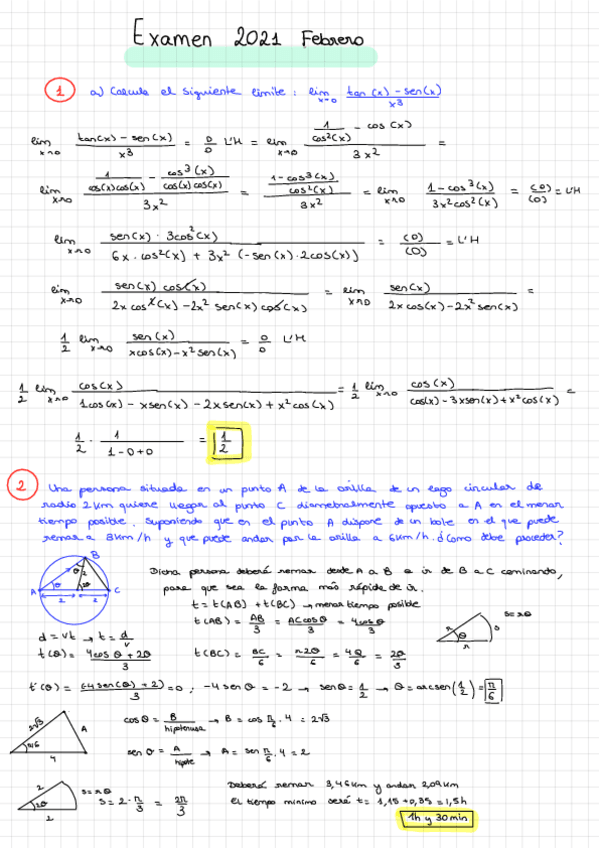 Examen 2021 Febrero
1 a) Calcula el siguiente límite: lim x→0 (tan(x) - sen(x)) / x³
lim x→0 (tan(x) - sen(x)) / x³ = 0/0 L'H = lim x→0 (1/cos²(x) - cos(x)) / 3x² =
lim x→0 (1/(cos(x)cos(x)) - cos³(x)/(cos(x)cos(x))) / 3x² = ((1-cos³(x))/cos²(x)) / 3x² = lim x→0 (1-cos³(x)) / (3x²cos²(x)) = (0)/(0) = L'H
lim x→0 (sen(x) · 3cos²(x)) / (6x · cos²(x) + 3x² (-sen(x) · 2cos(x))) = (0)/(0) = L'H
lim x→0 (sen(x) cos(x)) / (2x cos²(x) - 2x² sen(x) cos(x)) = lim x→0 sen(x) / (2x cos(x) - 2x² sen(x)) =
1/2 lim x→0 sen(x) / (x cos(x) - x² sen(x)) = 0/0 L'H
1/2 lim x→0 cos(x) / (1cos(x) - x sen(x) - 2x sen(x) + x² cos(x)) = 1/2 lim x→0 cos(x) / (cos(x) - 3x sen(x) + x² cos(x)) =
1/2 · 1/(1-0+0) = 1/2
2 Una persona situada en un punto A de la orilla de un lago circular de
radio 2km quiere llegar al punto C diametralmente opuesto a A en el menor
tiempo posible. Suponiendo que en el punto A dispone de un bote en el que puede
remar a 3km/h y que puede andar por la orilla a 6km/h. ¿Cómo debe proceder?
B
θ 2
A θ 2θ C
2 2
Dicha persona deberá remar desde A a B e ir de B a C caminando,
para que sea la forma más rápida de ir.
t = t(AB) + t(BC) → menor tiempo posible
t(AB) = AB/3 = AC cosθ/3 = 4cosθ/3
s = rθ
r θ s
r
d = vt → t = d/v
t(θ) = (4cosθ + 2θ)/3
t(BC) = BC/6 = r2θ/6 = 4θ/6 = 2θ/3
t'(θ) = (-4sen(θ) + 2)/3 = 0 ; -4senθ = -2 → senθ = 1/2 → θ = arcsen(1/2) = π/6
2√3 A
π/6
4
cosθ = B/hipotenusa → B = cos π/6 · 4 = 2√3
senθ = A/hipote → A = sen π/6 · 4 = 2
2 s = rθ
2θ
2
s = 2 · π/3 = 2π/3
Deberá remar 3,46km y andar 2,09km
El tiempo mínimo será t = 1,15 + 0,35 = 1,5h
1h y 30min